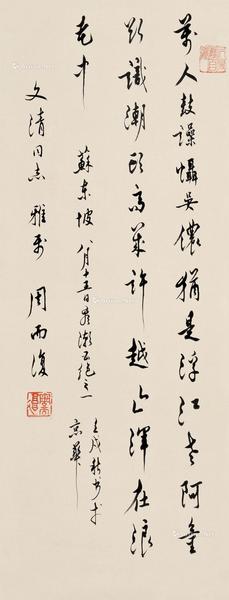 萬人鼓譟懾吳儂猶是浮江老阿童
欲識潮頭高幾許越山渾在浪
花中
蘇東坡八月十五日看潮五絕之一
壬戌秋書於
京華
文清同志雅正
周而復